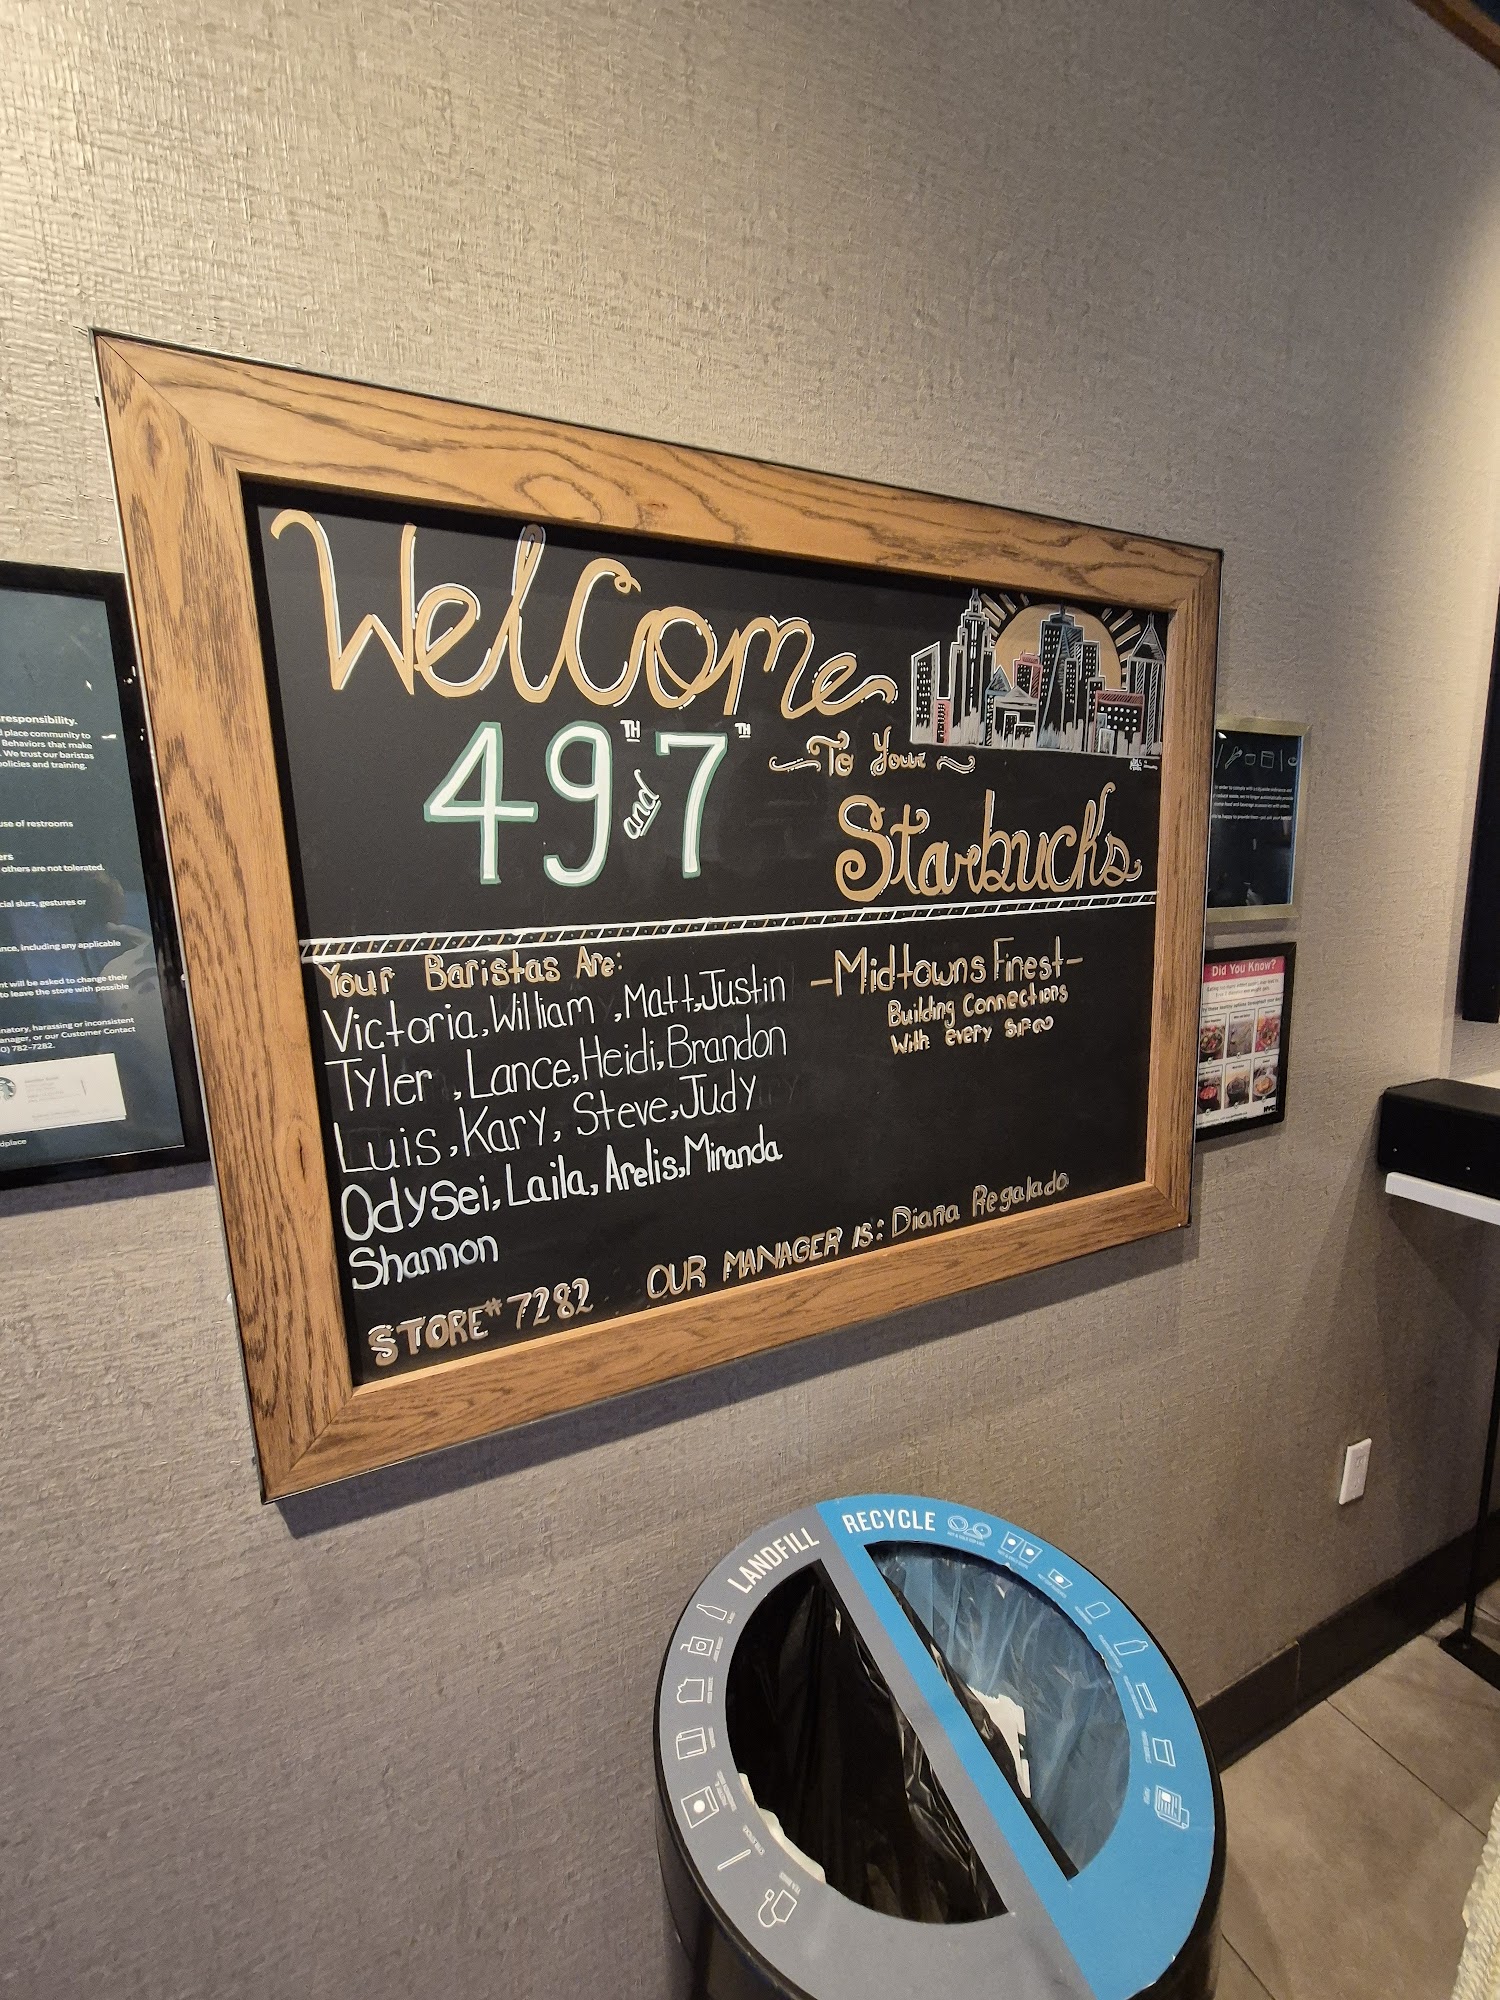 Welcome
49TH and 7TH
To Your
Starbucks
Your Baristas Are:
Victoria, William, Matt, Justin
Tyler, Lance, Heidi, Brandon
Luis, Kary, Steve, Judy
Odysei, Laila, Arelis, Miranda
Shannon
STORE# 7282
-Midtowns Finest-
Building Connections
With every
OUR MANAGER IS: Diana Regalado
responsibility.
place community to
Behaviors that make
We trust our baristas
policies and training.
use of restrooms
others are not tolerated.
slurs, gestures or
including any applicable
will be asked to change their
to leave the store with possible
harassing or inconsistent
or our Customer Contact
782-7282.
Did You Know?
NYC
LANDFILL
RECYCLE